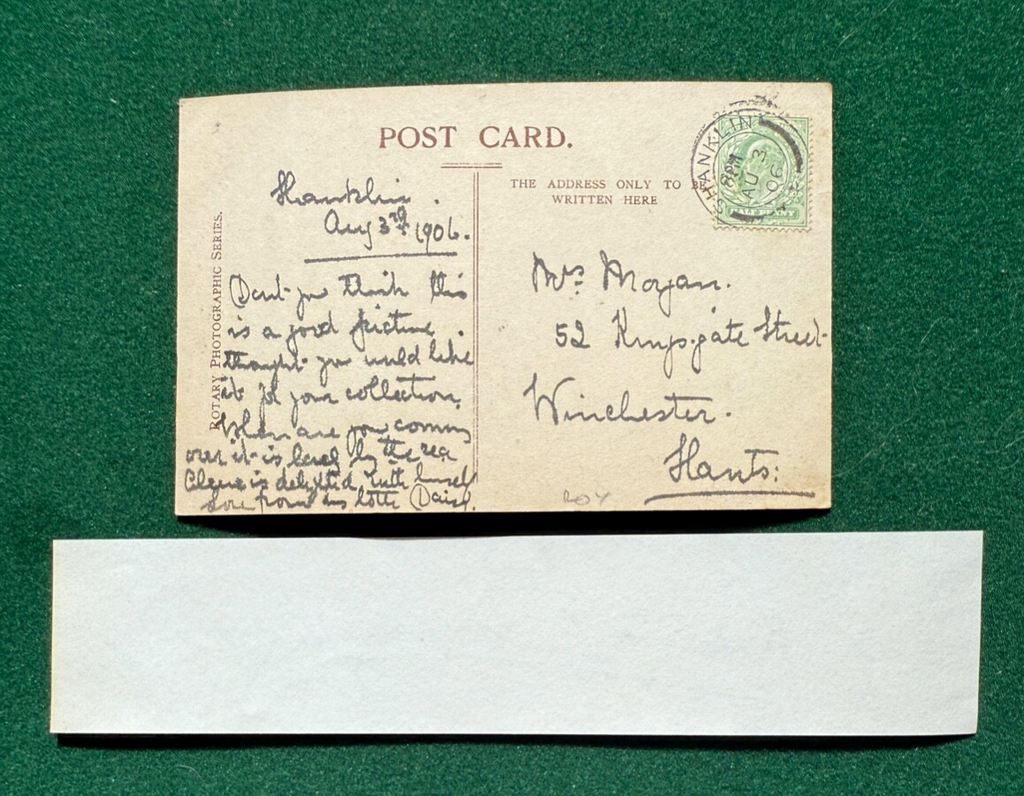 POST CARD.
THE ADDRESS ONLY TO BE
WRITTEN HERE
ROTARY PHOTOGRAPHIC SERIES.
SHANKLIN
8 PM
AU 3
06
HALFPENNY
Shanklin.
Aug 3rd 1906.
Dont you think this
is a good picture.
thought you would like
it for your collection.
When are you coming
over it is lovely by the sea
is delighted with herself
love from us Daisy.
Mrs Mogan.
52 Kingsgate Street
Winchester.
Hants: